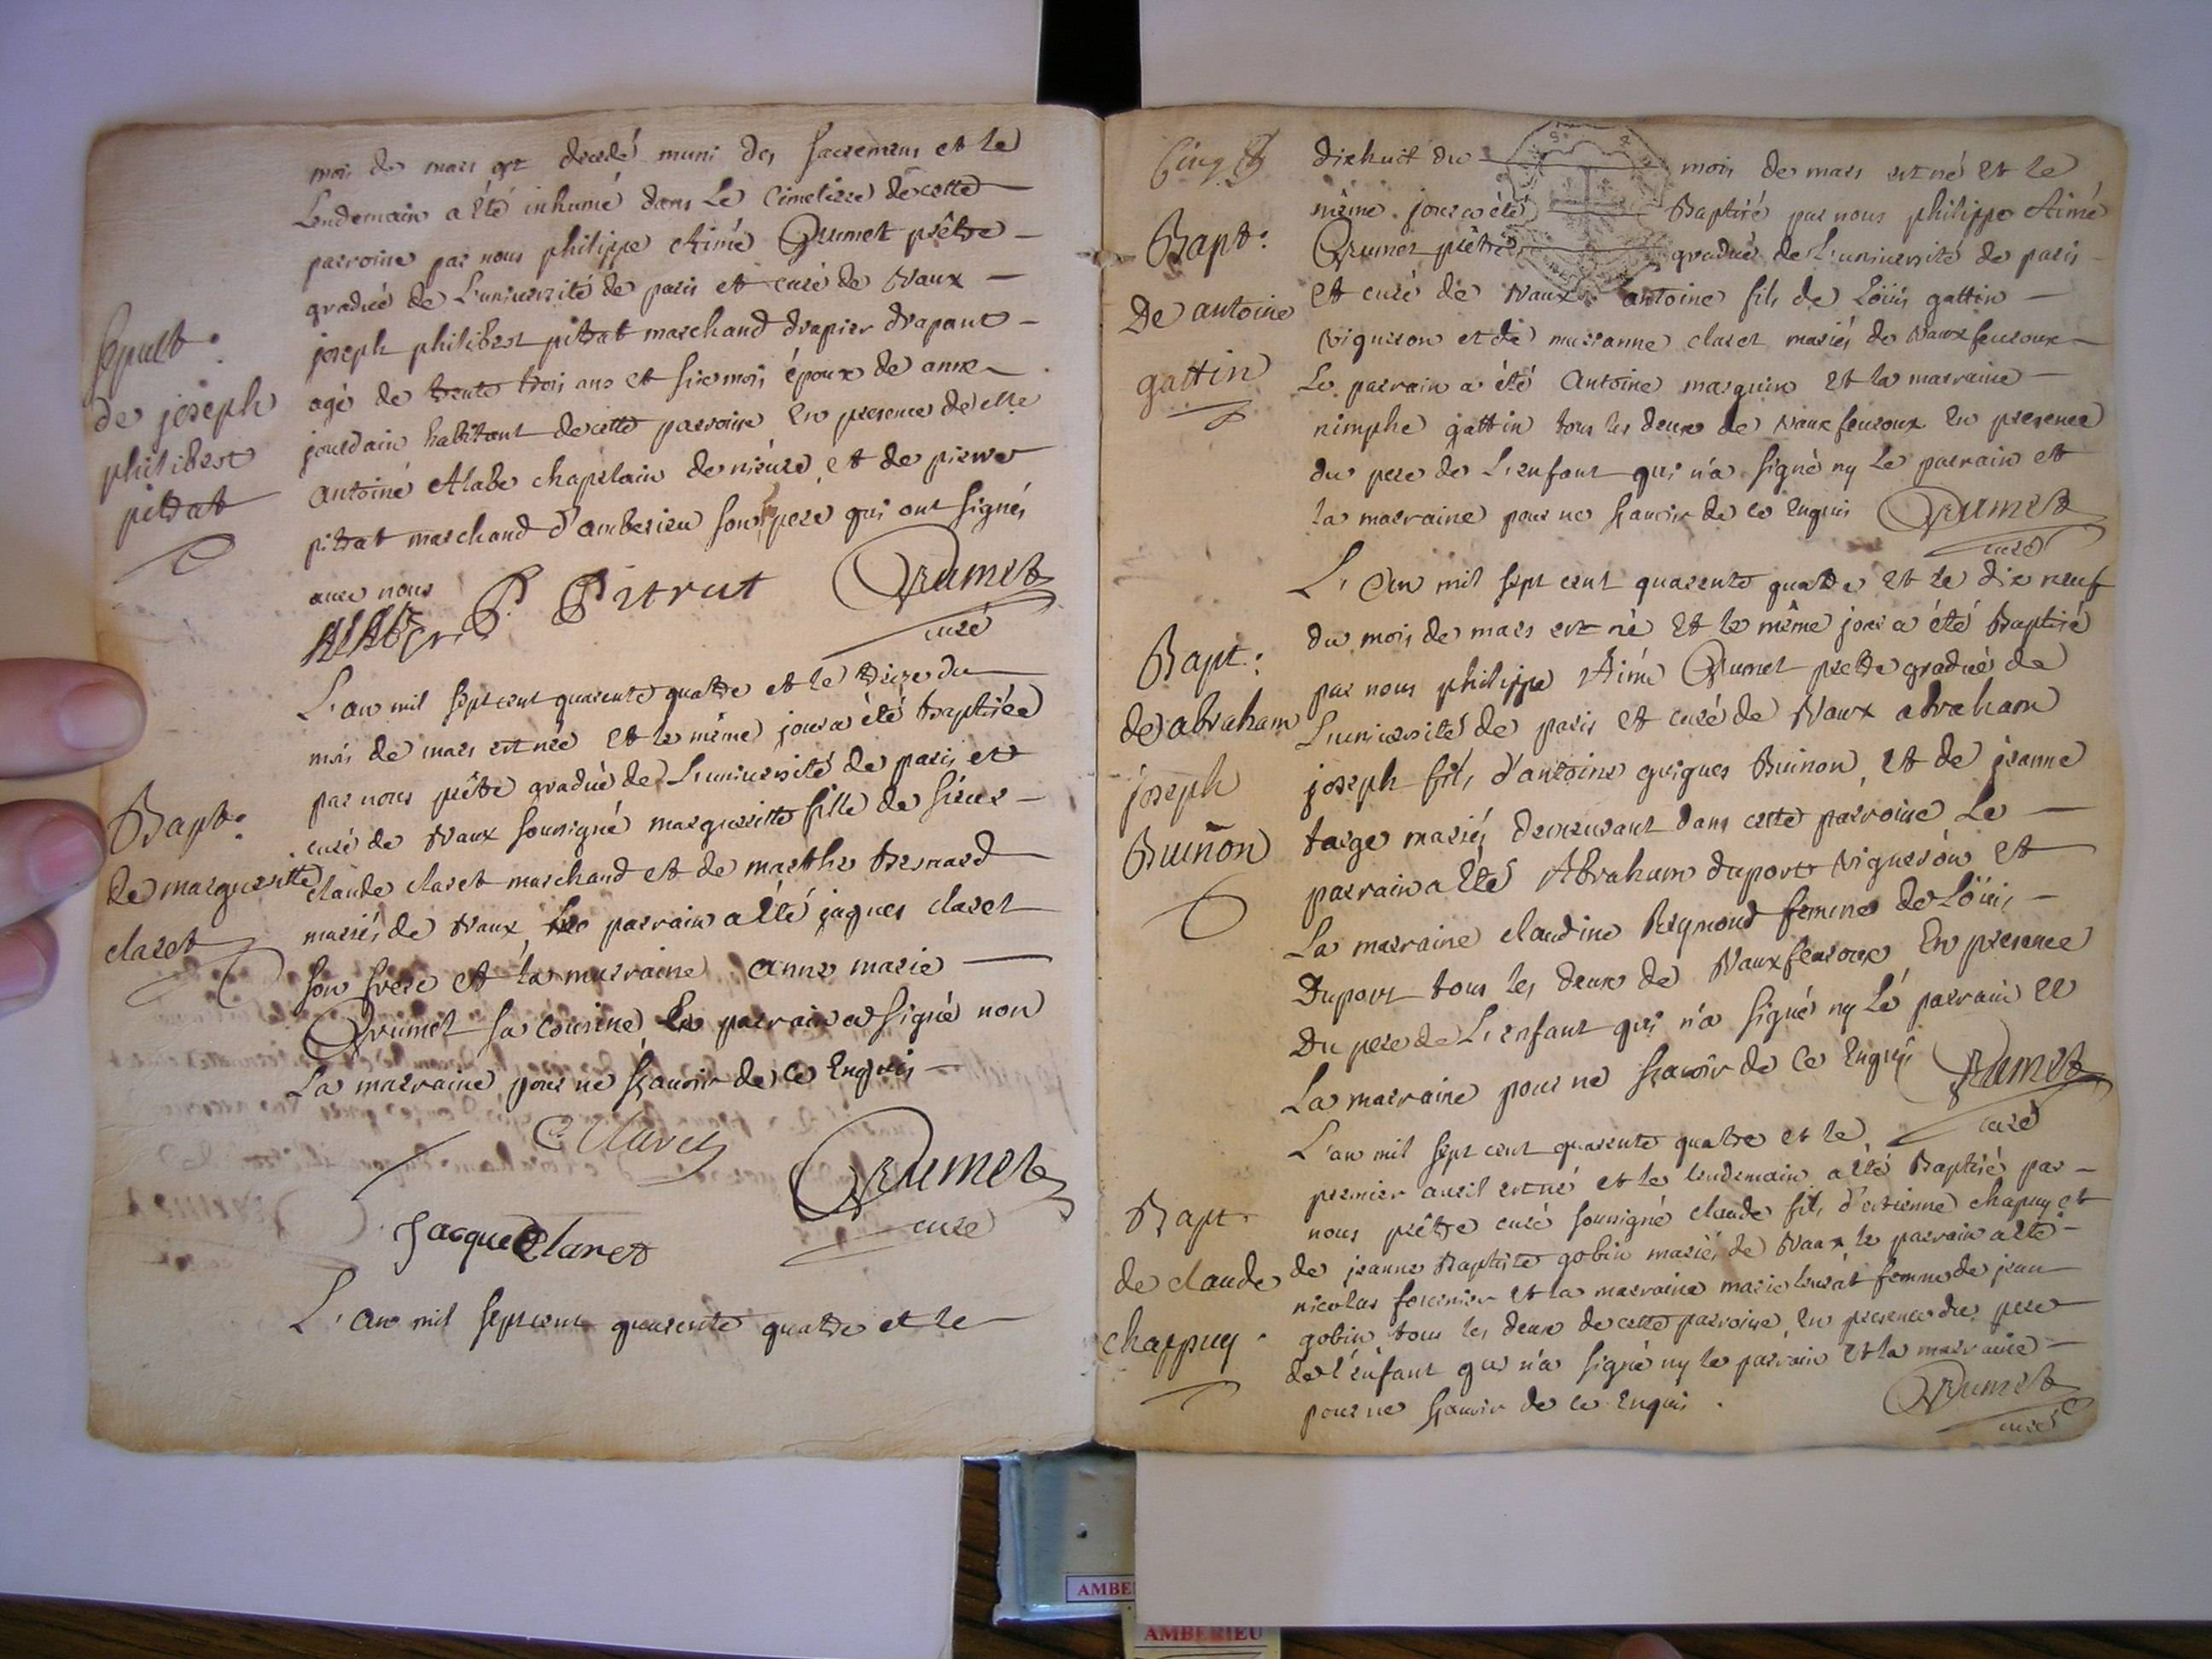 mois de mars est decedé muni des sacremens et le
lendemain a été inhumé dans le Cimetiere de cette
parroisse par nous philippe Aimé Brumet prêtre
gradué de L'université de paris et curé de Vaux
joseph philibert pitrat marchand drapier drapant
agé de trente trois ans et six mois époux de anne
jourdain habitant de cette parroisse En presence de
Antoine Alabe chapelain de et de pierre
pitrat marchand d'amberieu son pere qui ont signés
avec nous
P. Pitrat
Brumet
curé
Sepult:
de joseph
philibert
pitrat
L'an mil sept cent quarente quatre et le treize du
mois de mars est née et le même jour a été baptisée
par nous prêtre gradué de L'université de paris et
curé de Vaux soussigné margueritte fille de sieur
claude claret marchand et de marthe Bernard
mariés de Vaux Le parrain a été jaques claret
son frere et la marraine anne marie
Brumet sa cousine Le parrain a signé non
La marraine pour ne sçavoir de ce Enquis
C. Claret
Brumet
curé
Jacque Claret
Bapt:
de margueritte
claret
L'an mil sept cent quarente quatre et le
Cinq
dixhuit du mois de mars est né et le
même jour a été Baptisé par nous philippe Aimé
Brumet prêtre gradué de L'université de paris
et curé de Vaux antoine fils de Loüis gattin
vigneron et de marianne claret mariés de Vauxfevroux
Le parrain a été Antoine marguin et la marraine
nimphe gattin tous les deux de vauxfevroux En presence
du pere de L'enfant qui n'a signé ny Le parrain et
la marraine pour ne sçavoir de ce Enquis Brumet
curé
Bapt:
De antoine
gattin
L'an mil sept cent quarente quatre et le dix neuf
du mois de mars est né et le même jour a été Baptisé
par nous philippe Aimé Brumet pretre gradué de
L'université de paris et curé de Vaux abraham
joseph fils d'antoine guigues Buinon et de jeanne
targe mariés demeurant dans cette parroisse Le
parrain a été Abraham duport vigneron et
La marraine claudine Reymond femme de Loüis
Duport tous les deux de Vauxfevroux En presence
Du pere de L'enfant qui n'a signé ny Le parrain et
La marraine pour ne sçavoir de ce Enquis Brumet
curé
Bapt:
de abraham
joseph
Buinon
L'an mil sept cent quarente quatre et le
premier avril est né et le lendemain a été Baptisé par
nous prêtre curé soussigné claude fils d'etienne chapuy et
de jeanne Baptiste gobin mariés de Vaux le parrain a été
nicolas fournier et la marraine marie femme de jean
gobin tous les deux de cette parroisse, en presence du pere
de l'enfant qui n'a signé ny le parrain et la marraine
pour ne sçavoir de ce Enquis.
Brumet
curé
Bapt.
de claude
chappuy
AMBERIEU